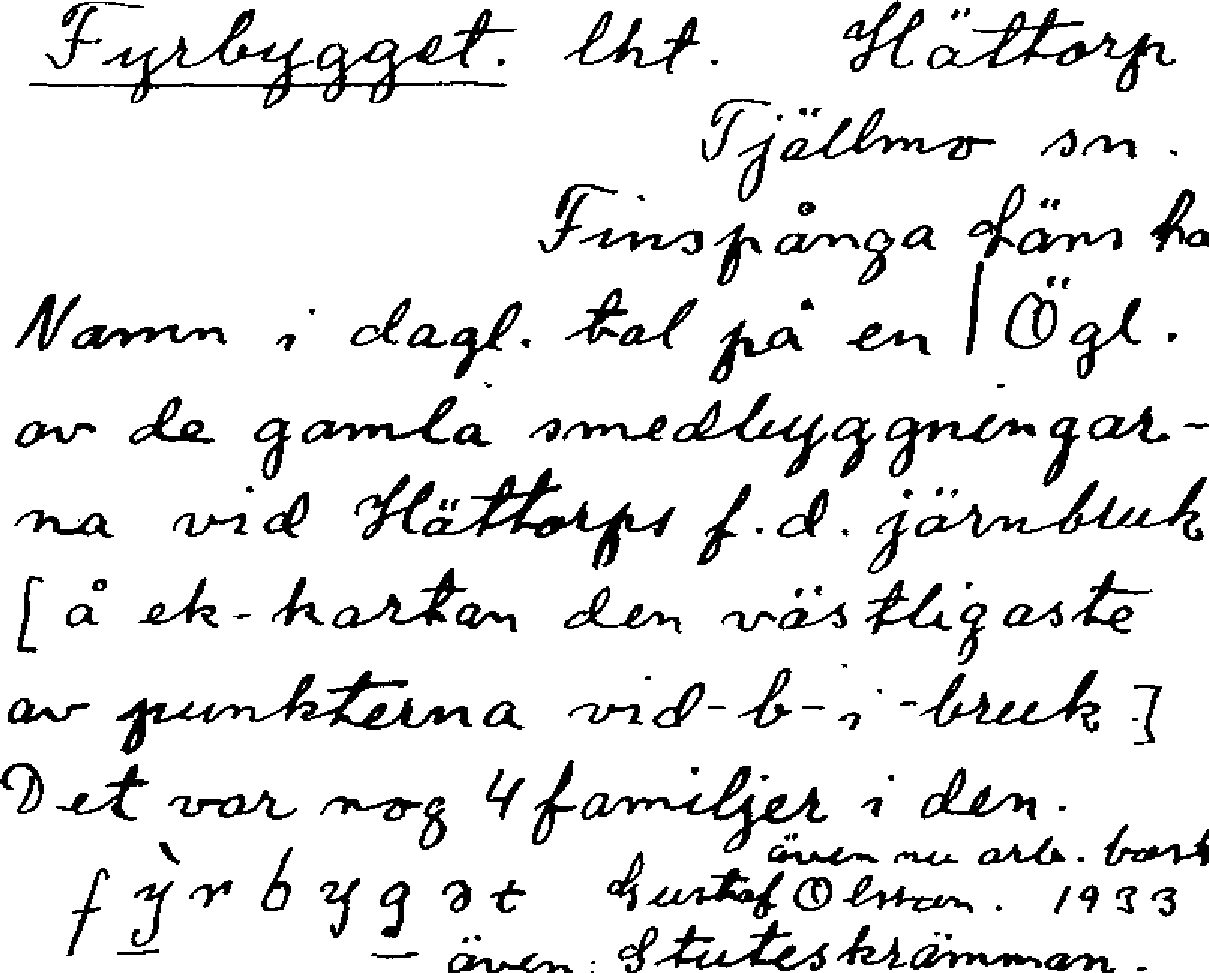 Fyrbygget. lht. Hättorp
Tjällmo sn.
Finspånga läns hd
Namn i dagl. tal på en | Ögl.
av de gamla smedbyggningar-
na vid Hättorps f.d. järnbruk
[å ek-kartan den västligaste
av punkterna vid -b-i-bruk.]
Det var nog 4 familjer i den.
även nu arb. bost
fỳrbygət Gustaf Olsson. 1933
även: Stuteskrämman.